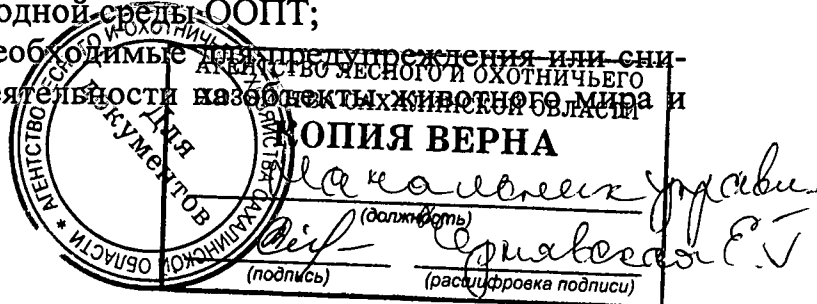 одной среды ООПТ;
еобходимые для предупреждения или сни-
еятельности на объекты животного мира и
АГЕНТСТВО ЛЕСНОГО И ОХОТНИЧЬЕГО
ХОЗЯЙСТВА САХАЛИНСКОЙ ОБЛАСТИ
КОПИЯ ВЕРНА
Начальник управл.
(должность)
Чернявская Е.
(подпись)
(расшифровка подписи)
АГЕНТСТВО ЛЕСНОГО И ОХОТНИЧЬЕГО ХОЗЯЙСТВА САХАЛИНСКОЙ ОБЛАСТИ *
Для
документов